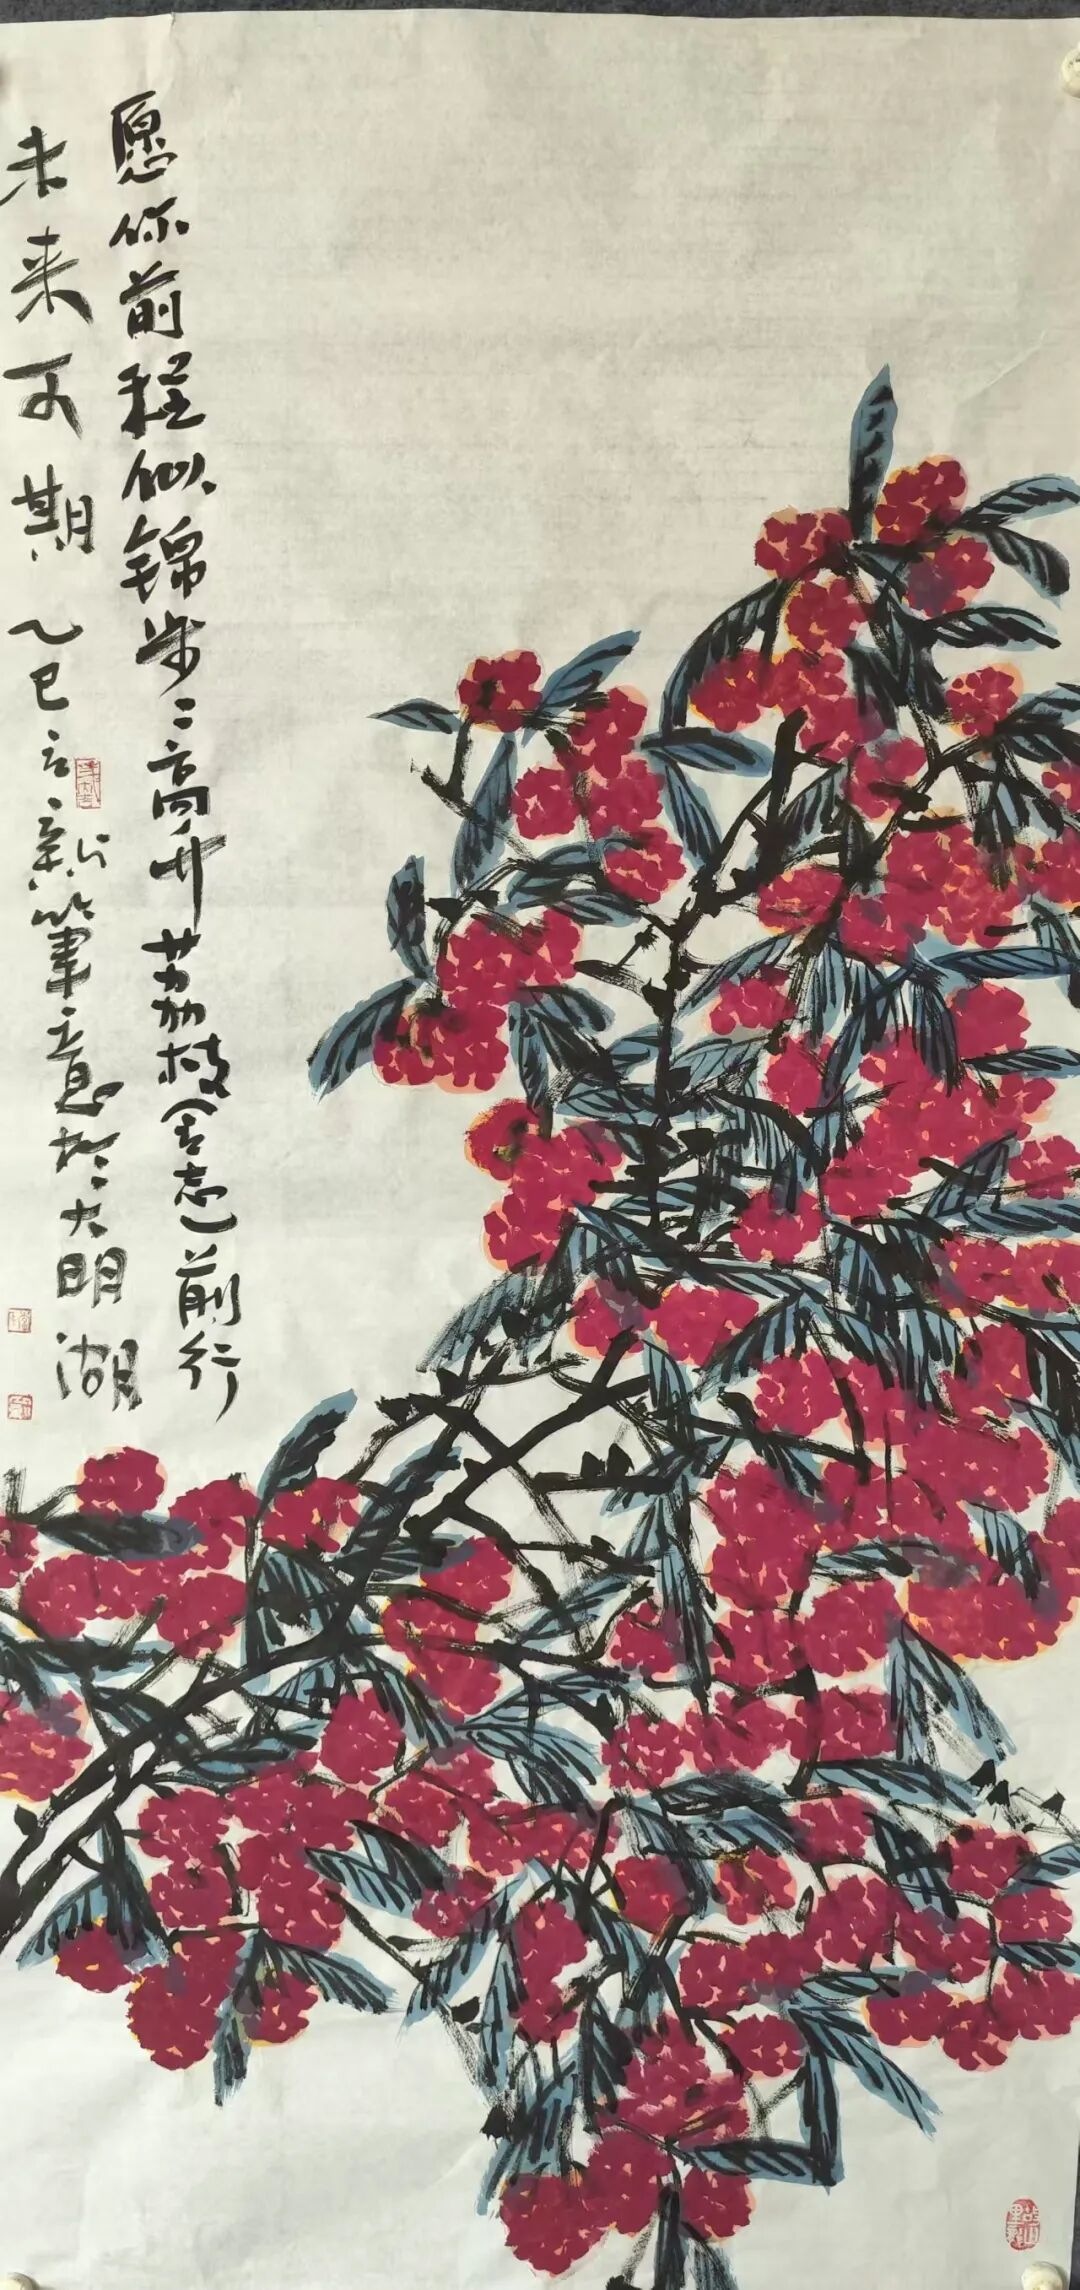 愿你前程似锦步〻高升荔枝含志前行
未来可期乙巳立新筆意於大明湖